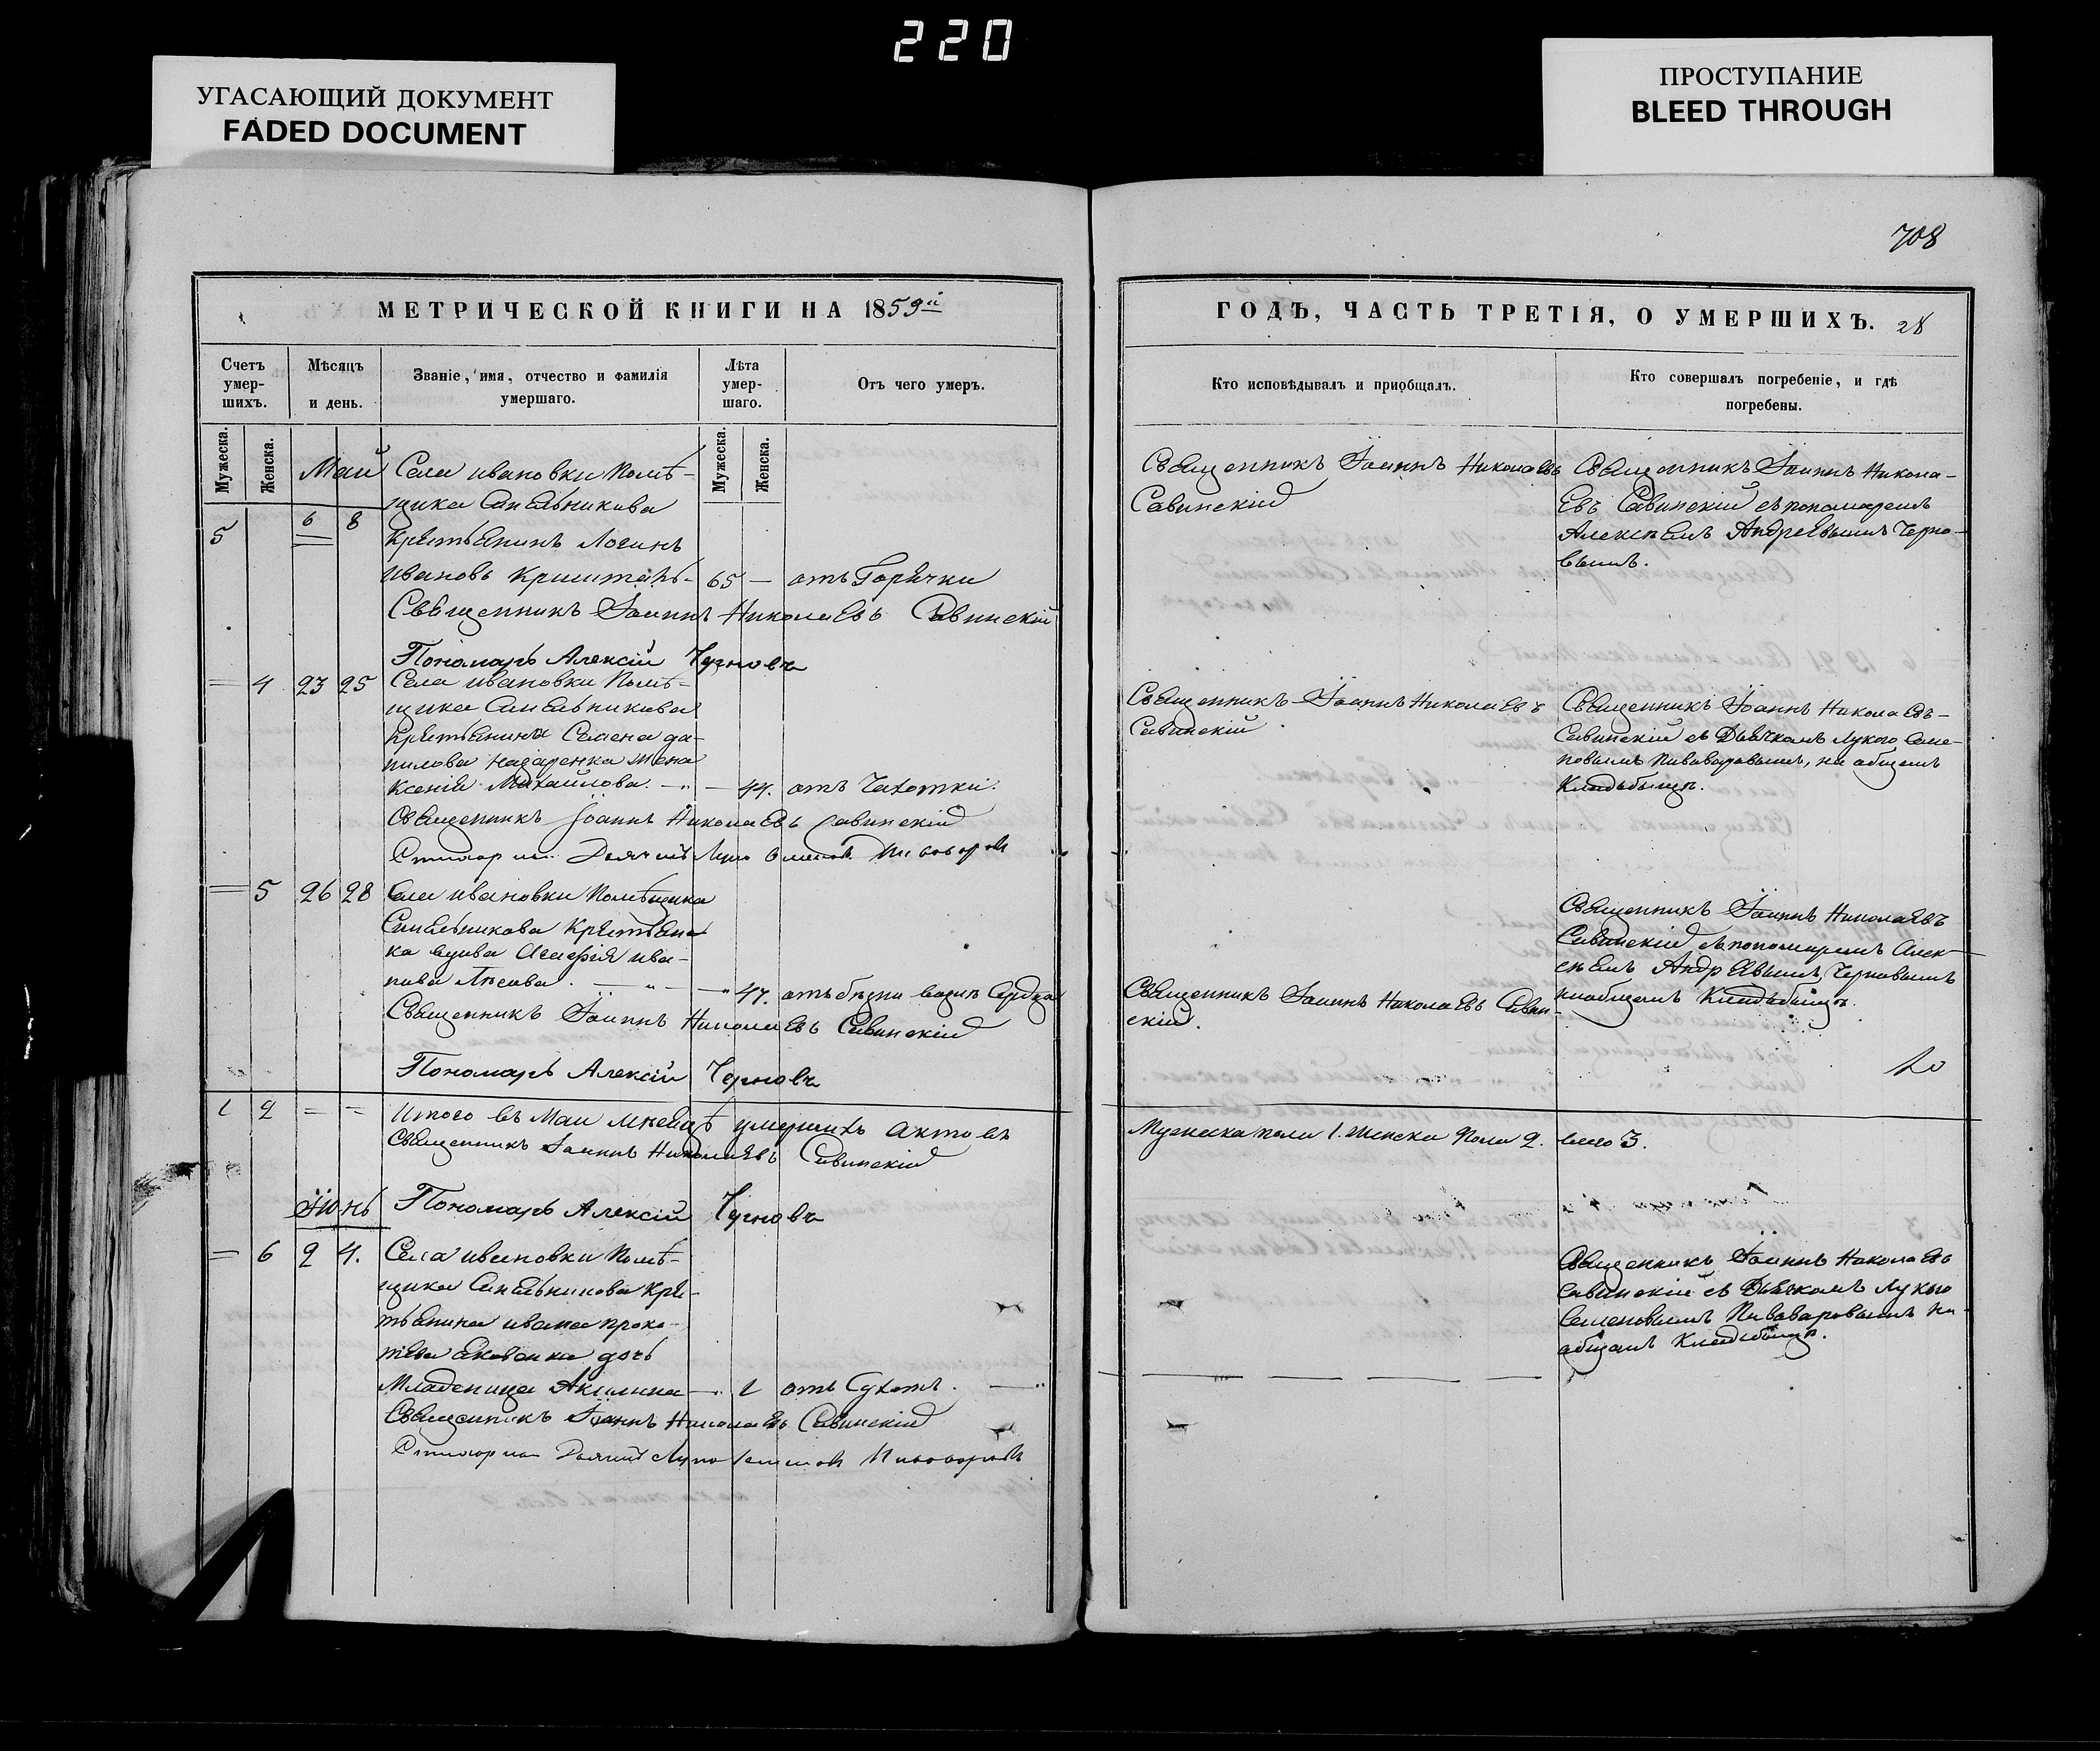 220
УГАСАЮЩИЙ ДОКУМЕНТ
FADED DOCUMENT
ПРОСТУПАНИЕ
BLEED THROUGH
708
МЕТРИЧЕСКОЙ КНИГИ НА 1859й
Счетъ умер-шихъ.
Мѣсяцъ и день.
Званіе, имя, отчество и фамилія умершаго.
Лѣта умер-шаго.
Отъ чего умеръ.
Мужеска.
Женска.
Мужеска.
Женска.
Май
Села ивановки Помѣ-
щика Синельникова
5 6 8
Крестьянинъ Логинъ
Ивановъ 65 — отъ Горячки
Священникъ Іоаннъ Николаевъ Савинскій
Пономарь Алексій Черновъ
= 4 23 25 Села ивановки Помѣ-
щика Синельникова
Крестьянина Семена да-
нилова Назаренка жена
Ксенія Михайлова. — " — 44. отъ Чахотки.
Священникъ Іоаннъ Николаевъ Савинскій
Дьячекъ
= 5 26 28 Села ивановки Помѣщика
Синельникова Крестьян-
ка вдова ива-
нова — " — 47. отъ
Священникъ Іоаннъ Николаевъ Савинскій
Пономарь Алексій Черновъ
1 2 = = Итого въ Маи мѣсяцѣ умершихъ актовъ
Священникъ Іоаннъ Николаевъ Савинскій
Іюнь
Пономарь Алексій Черновъ
= 6 2 4. Села ивановки Помѣ-
щика Синельникова Кре-
стьянина ивана проко-
дочь
Младеница Акилина — " 1 отъ Сухотъ. — "
Священникъ Іоаннъ Николаевъ Савинскій
Дьячекъ
ГОДЪ, ЧАСТЬ ТРЕТІЯ, О УМЕРШИХЪ. 28
Кто исповѣдывалъ и приобщалъ.
Кто совершалъ погребеніе, и гдѣ погребены.
Священникъ Іоаннъ Николаевъ
Савинскій
Священникъ Іоаннъ Никола-
евъ Савинскій съ пономаремъ
Алексѣемъ Андреевымъ Черно-
вымъ.
Священникъ Іоаннъ Николаевъ
Савинскій
Священникъ Іоаннъ Николаевъ-
Савинскій съ Дьячкомъ Лукою Семе-
новымъ Пивоваровымъ, на общемъ
Кладбищѣ.
Священникъ Іоаннъ Николаевъ Савин-
скій.
Священникъ Іоаннъ Николаевъ
Савинскій съ пономаремъ Алек-
сѣемъ Андреевымъ Черновымъ
на общемъ Кладбищѣ.
Мужеска пола 1. Женска Пола 2. всего 3.
Священникъ Іоаннъ Николаевъ
Савинскій съ Дьячкомъ Лукою
Семеновымъ Пивоваровымъ на
общемъ Кладбищѣ.